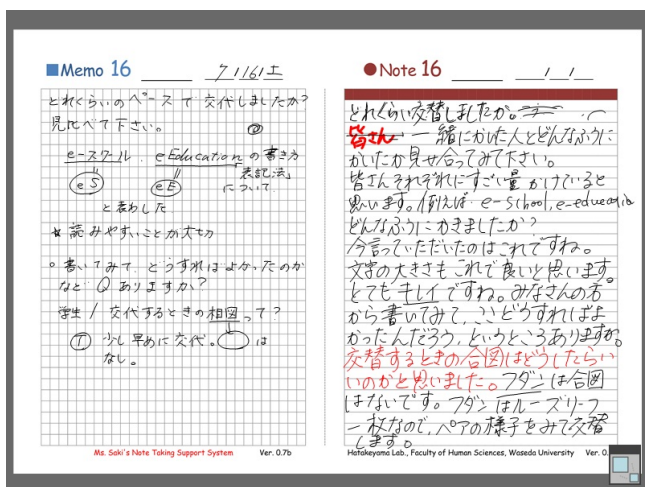 ■Memo 16
7/16/土
どれくらいのペースで交代しましたか?
見比べて下さい。
e-スクール、eEducationの書き方
表記法
について
eS
eE
と表わした
読みやすいことが大切
書いてみて、どうすればよかったのか
など Q ありますか?
学生/交代するときの相図って?
T 少し早めに交代。 は
なし。
Ms. Saki's Note Taking Support System Ver. 0.7b
●Note 16
どれくらい交替しましたか。
皆さん 一緒にかいた人とどんなふうに
かいたか見せ合ってみて下さい。
皆さんそれぞれにすごい量かけていると
思います。例えば e-school, e-education
どんなふうにかきましたか?
今言っていただいたのはこれですね。
文字の大きさもこれで良いと思います。
とてもキレイですね。みなさんの方
から書いてみて、ここどうすればよ
かったんだろう、というところありますか。
交替するときの合図はどうしたらい
いのかと思いました。フダンは合図
はないです。フダンはルーズリーフ
一枚なので、ペアの様子をみて交替
します。
Hatakeyama Lab., Faculty of Human Sciences, Waseda University Ver. 0.